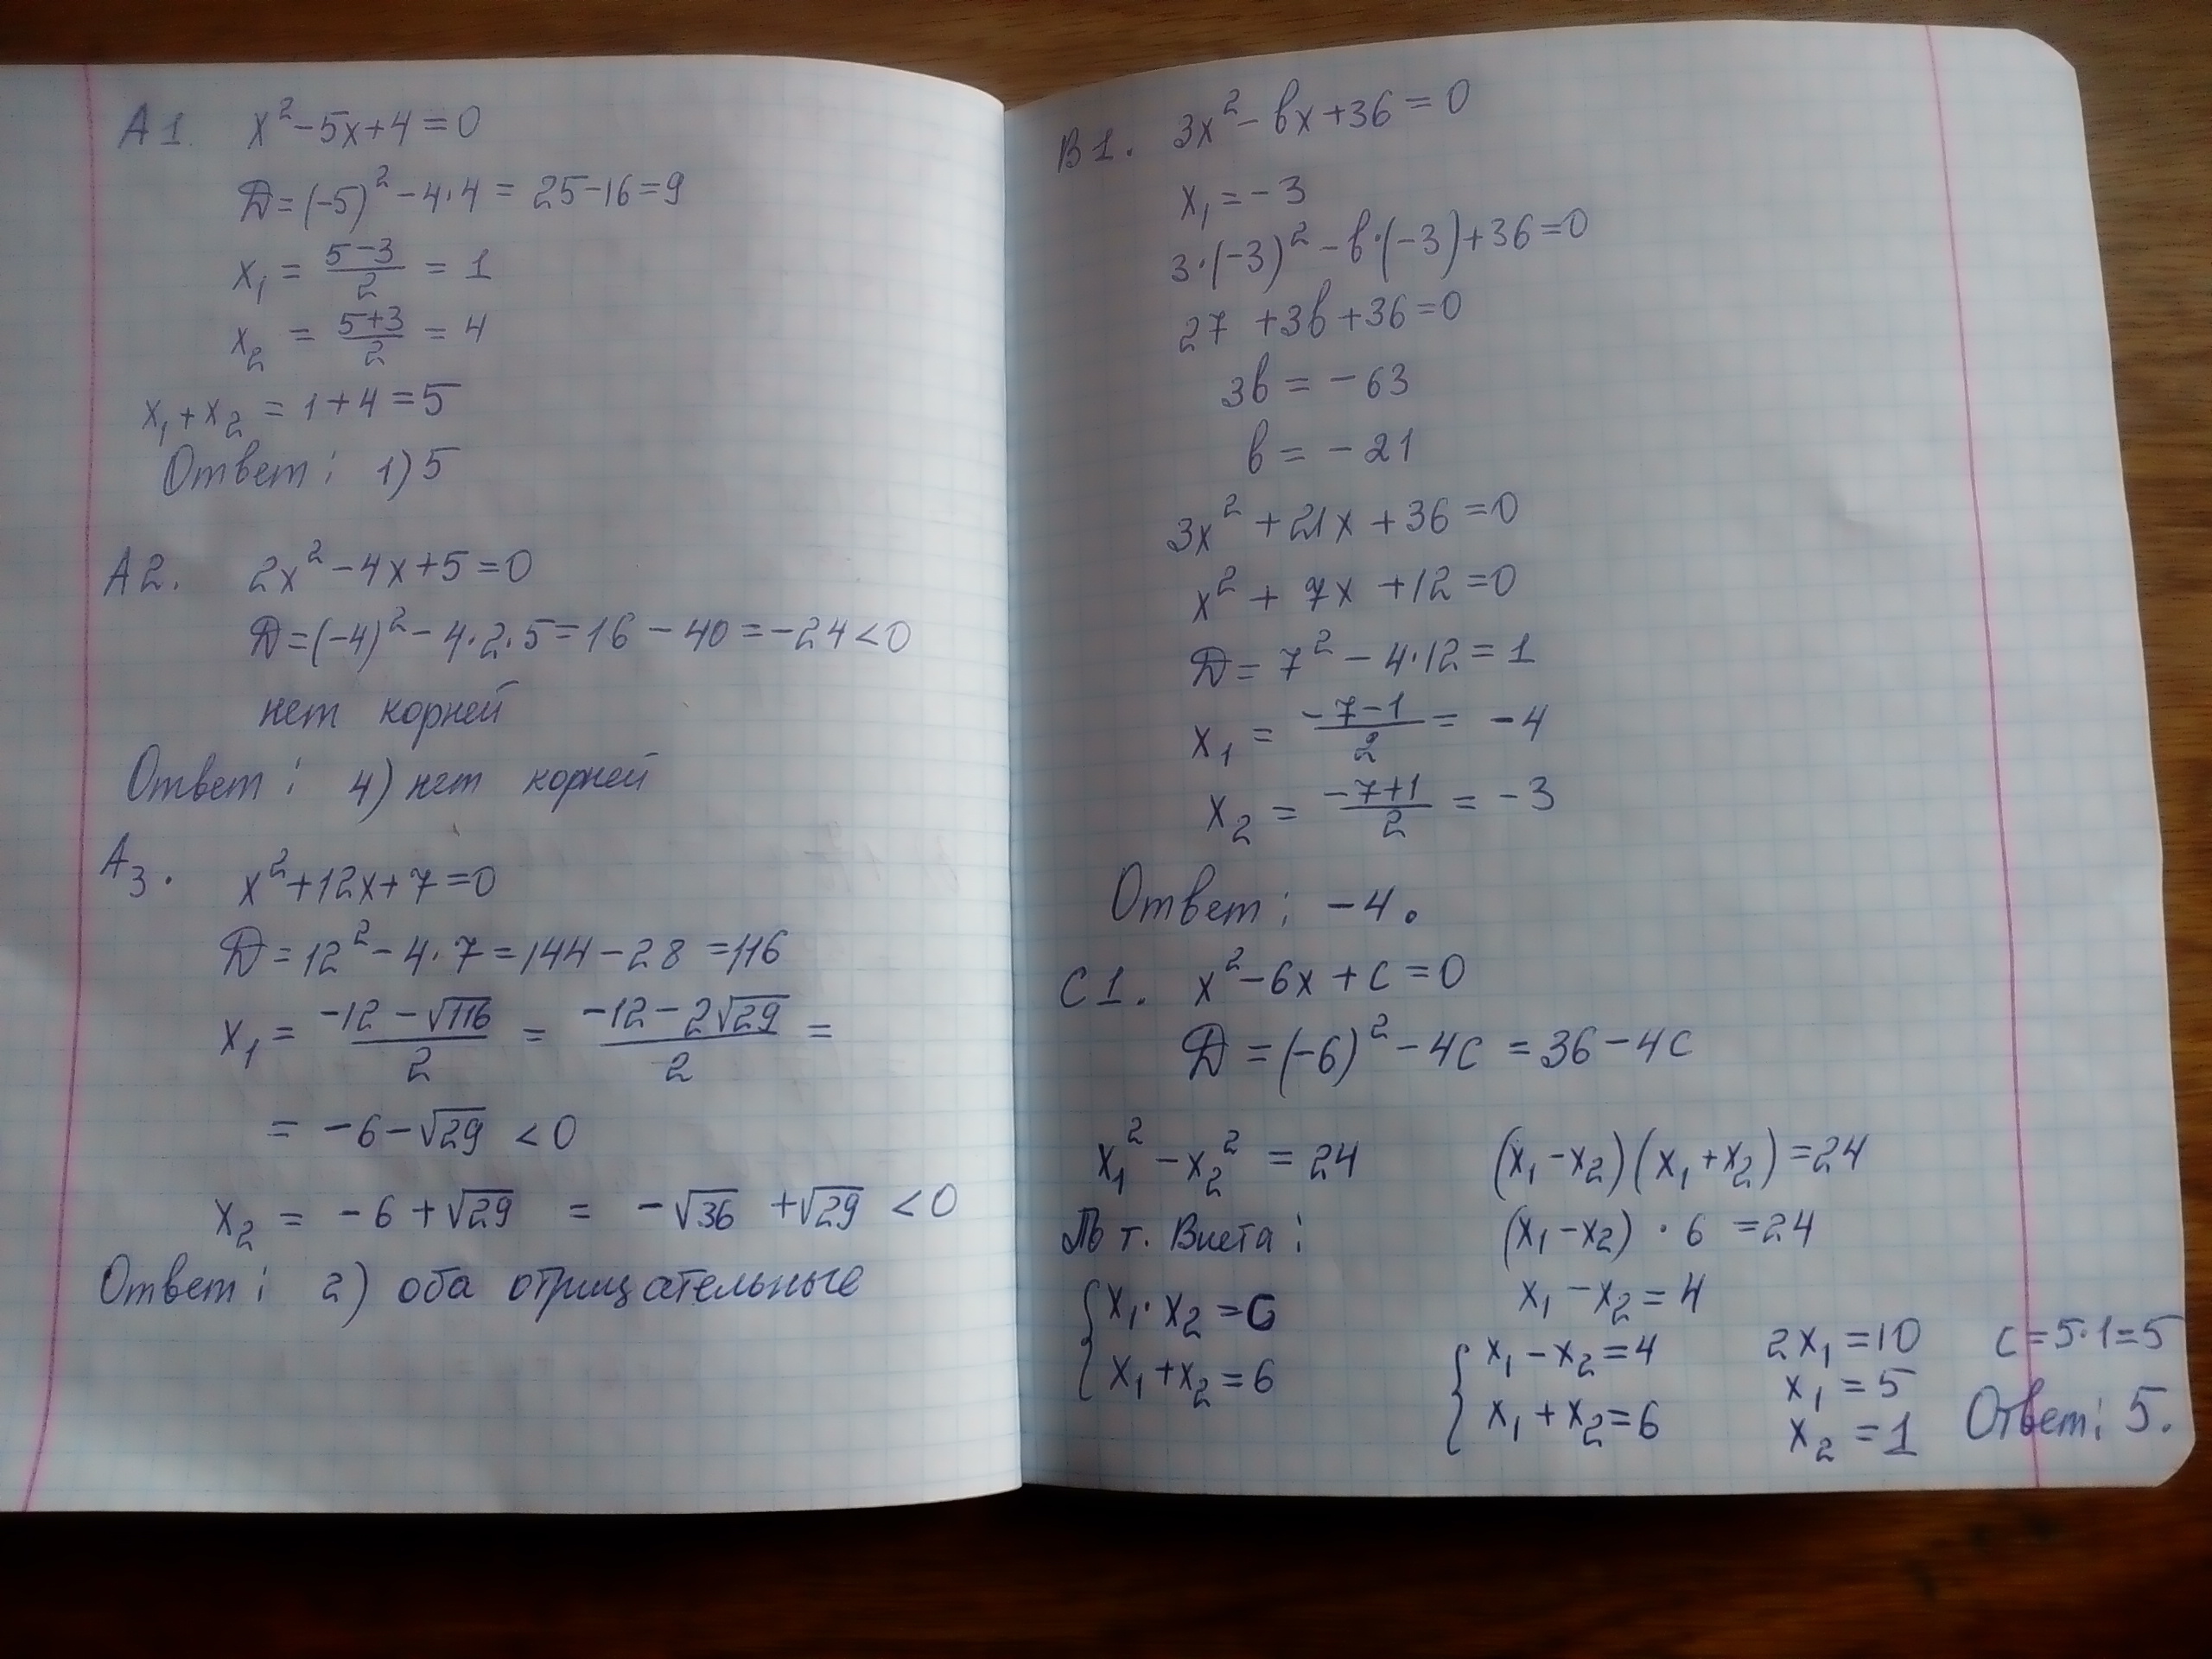 A1. x²-5x+4=0
D=(-5)²-4·4=25-16=9
x₁ = (5-3)/2 = 1
x₂ = (5+3)/2 = 4
x₁+x₂ = 1+4=5
Ответ: 1) 5
A2. 2x²-4x+5=0
D=(-4)²-4·2·5=16-40=-24<0
нет корней
Ответ: 4) нет корней
A3. x²+12x+7=0
D=12²-4·7=144-28=116
x₁ = (-12-√116)/2 = (-12-2√29)/2 =
= -6-√29 <0
x₂ = -6+√29 = -√36+√29 <0
Ответ: 2) оба отрицательные
B1. 3x²-bx+36=0
x₁=-3
3·(-3)²-b·(-3)+36=0
27+3b+36=0
3b=-63
b=-21
3x²+21x+36=0
x²+7x+12=0
D=7²-4·12=1
x₁ = (-7-1)/2 = -4
x₂ = (-7+1)/2 = -3
Ответ: -4.
C1. x²-6x+c=0
D=(-6)²-4c=36-4c
x₁²-x₂²=24
По т. Виета:
{x₁·x₂=c
x₁+x₂=6
(x₁-x₂)(x₁+x₂)=24
(x₁-x₂)·6=24
x₁-x₂=4
{x₁-x₂=4
x₁+x₂=6
2x₁=10
x₁=5
x₂=1
c=5·1=5
Ответ: 5.